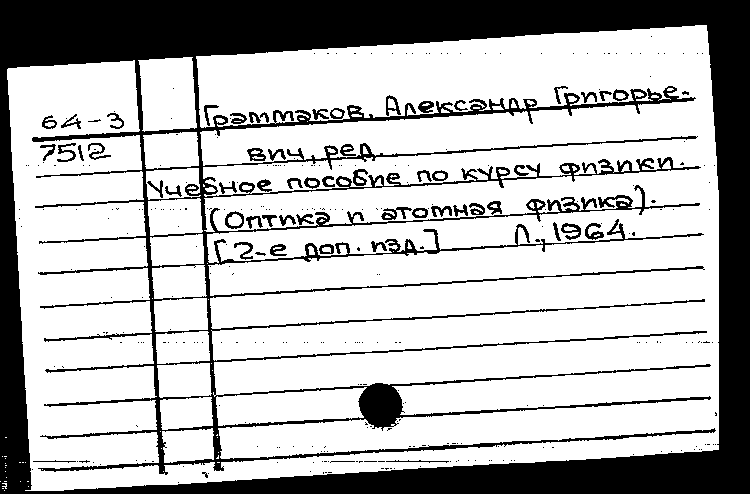 64-3 Граммаков, Александр Григорье-
7512 вич, ред.
Учебное пособие по курсу физики.
(Оптика и атомная физика).
[2-е доп. изд.] Л., 1964.